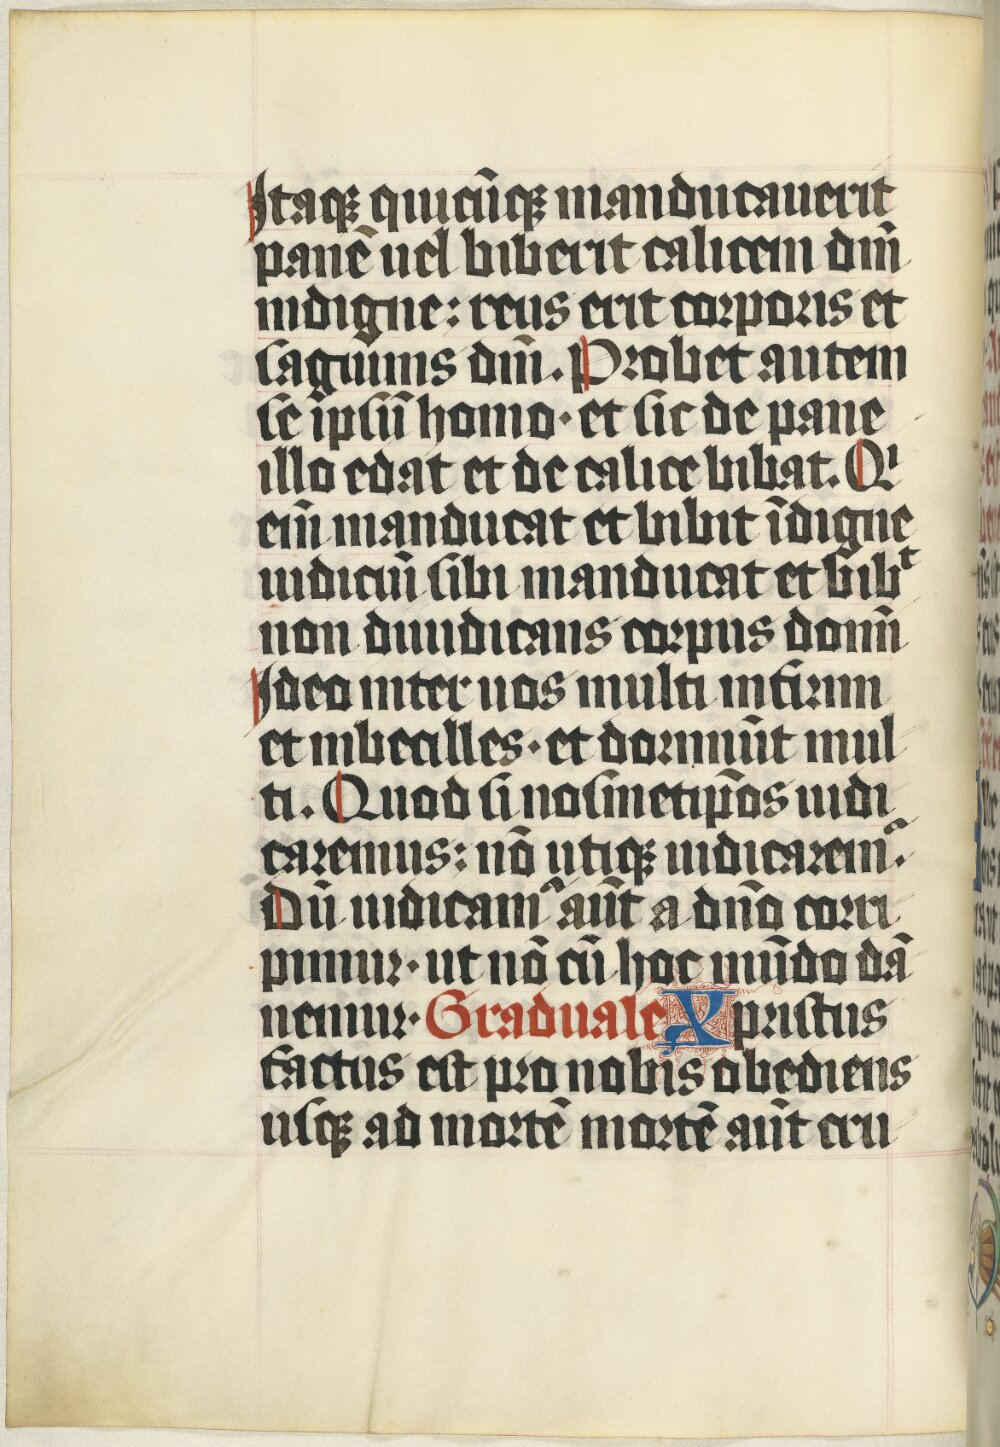 Itaqꝫ quicūqꝫ manducauerit
panē uel biberit calicem dnī
indigne: reus erit corporis et
saguinis dnī. Probet autem
se ipsū homo· et sic de pane
illo edat et de calice bibat. Qͥ
enī manducat et bibit īdigne
iudiciū sibi manducat et bibᵗ
non diiudicans corpus domī
Ideo inter uos multi infirmi
et inbecilles· et dormiūt mul
ti. Quod si nosmetip̄os iudi
caremus: nō utiqꝫ iudicaremꝰ.
Dū iudicamꝰ aūt a dn̄o corri
pimur· ut nō cū hoc mūdo dā
nemur· Graduale Xpristus
factus est pro nobis obediens
usqꝫ ad mortē mortē aūt cru